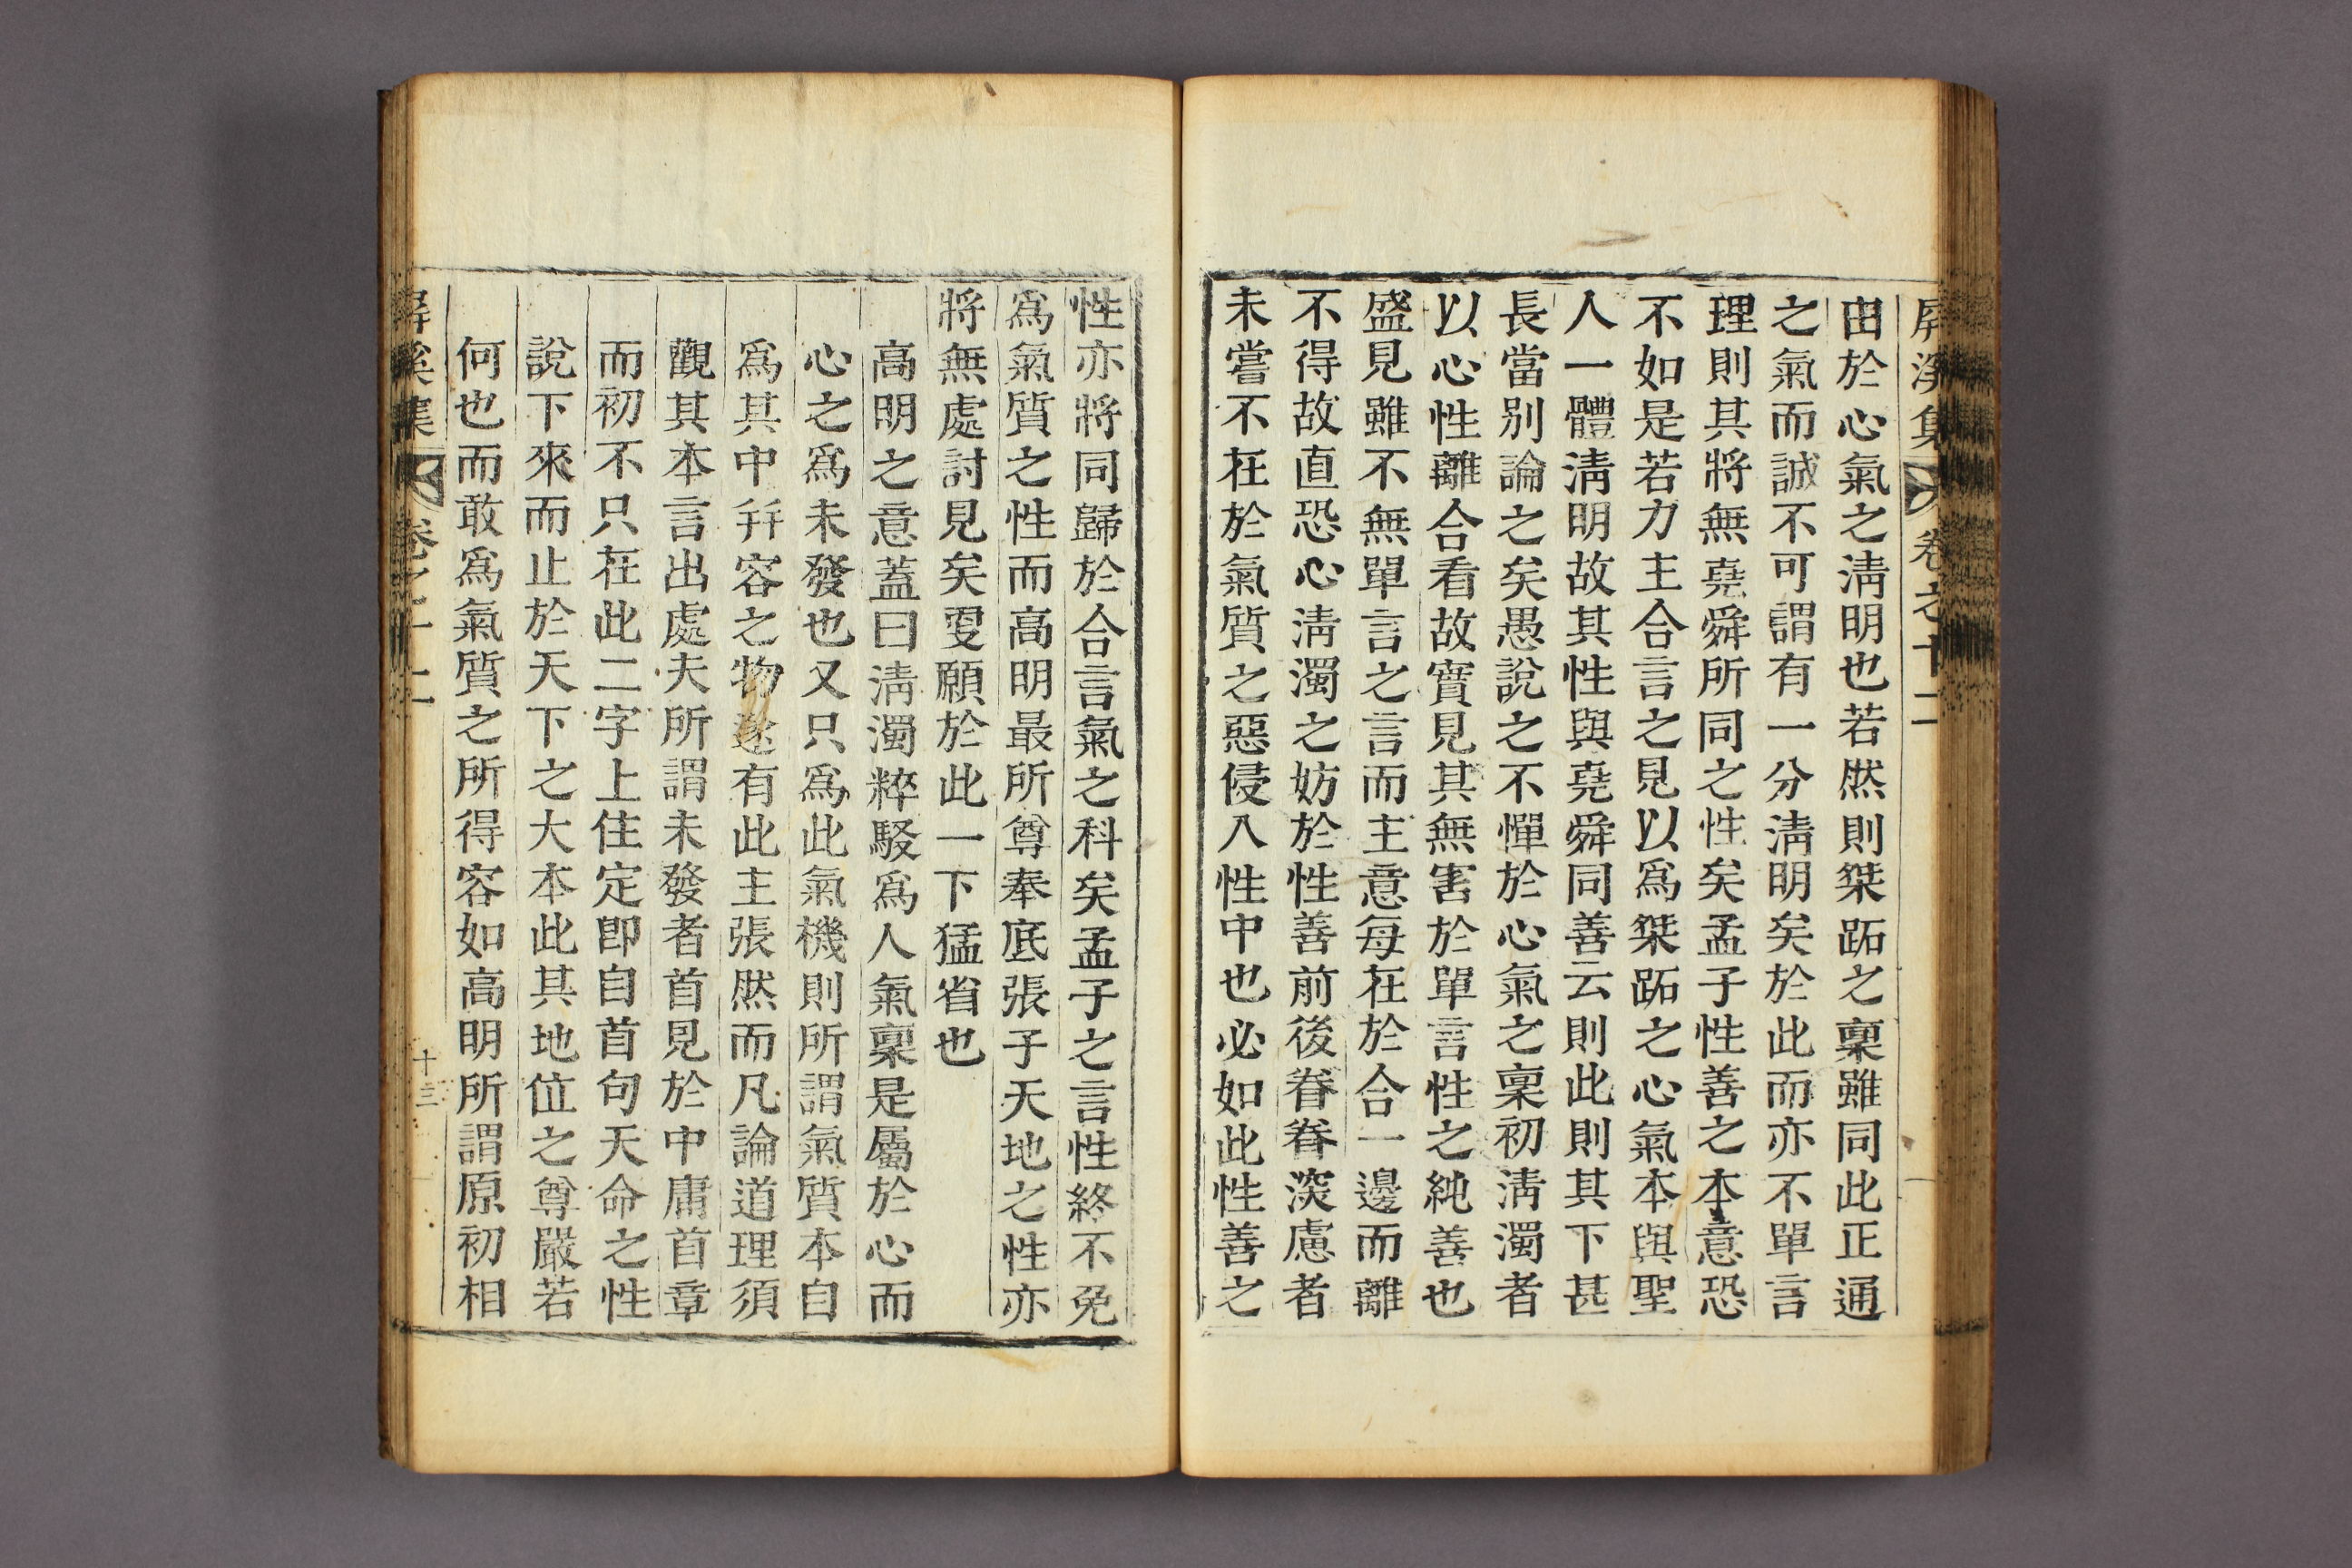 屏溪集 卷之十二
由於心氣之淸明也若然則桀跖之稟雖同此正通
之氣而誠不可謂有一分淸明矣於此而亦不單言
理則其將無堯舜所同之性矣孟子性善之本意恐
不如是若力主合言之見以爲桀跖之心氣本與聖
人一體淸明故其性與堯舜同善云則此則其下甚
長當別論之矣愚說之不憚於心氣之稟初淸濁者
以心性離合看故實見其無害於單言性之純善也
盛見雖不無單言之言而主意每在於合一邊而離
不得故直恐心淸濁之妨於性善前後眷眷深慮者
未嘗不在於氣質之惡侵入性中也必如此性善之
性亦將同歸於合言氣之科矣孟子之言性終不免
爲氣質之性而高明最所尊奉底張子天地之性亦
將無處討見矣更願於此一下猛省也
高明之意蓋曰淸濁粹駁爲人氣稟是屬於心而
心之爲未發也又只爲此氣機則所謂氣質本自
爲其中幷容之物遂有此主張然而凡論道理須
觀其本言出處夫所謂未發者首見於中庸首章
而初不只在此二字上住定卽自首句天命之性
說下來而止於天下之大本此其地位之尊嚴若
何也而敢爲氣質之所得容如高明所謂原初相
屏溪集 卷之十二 十三